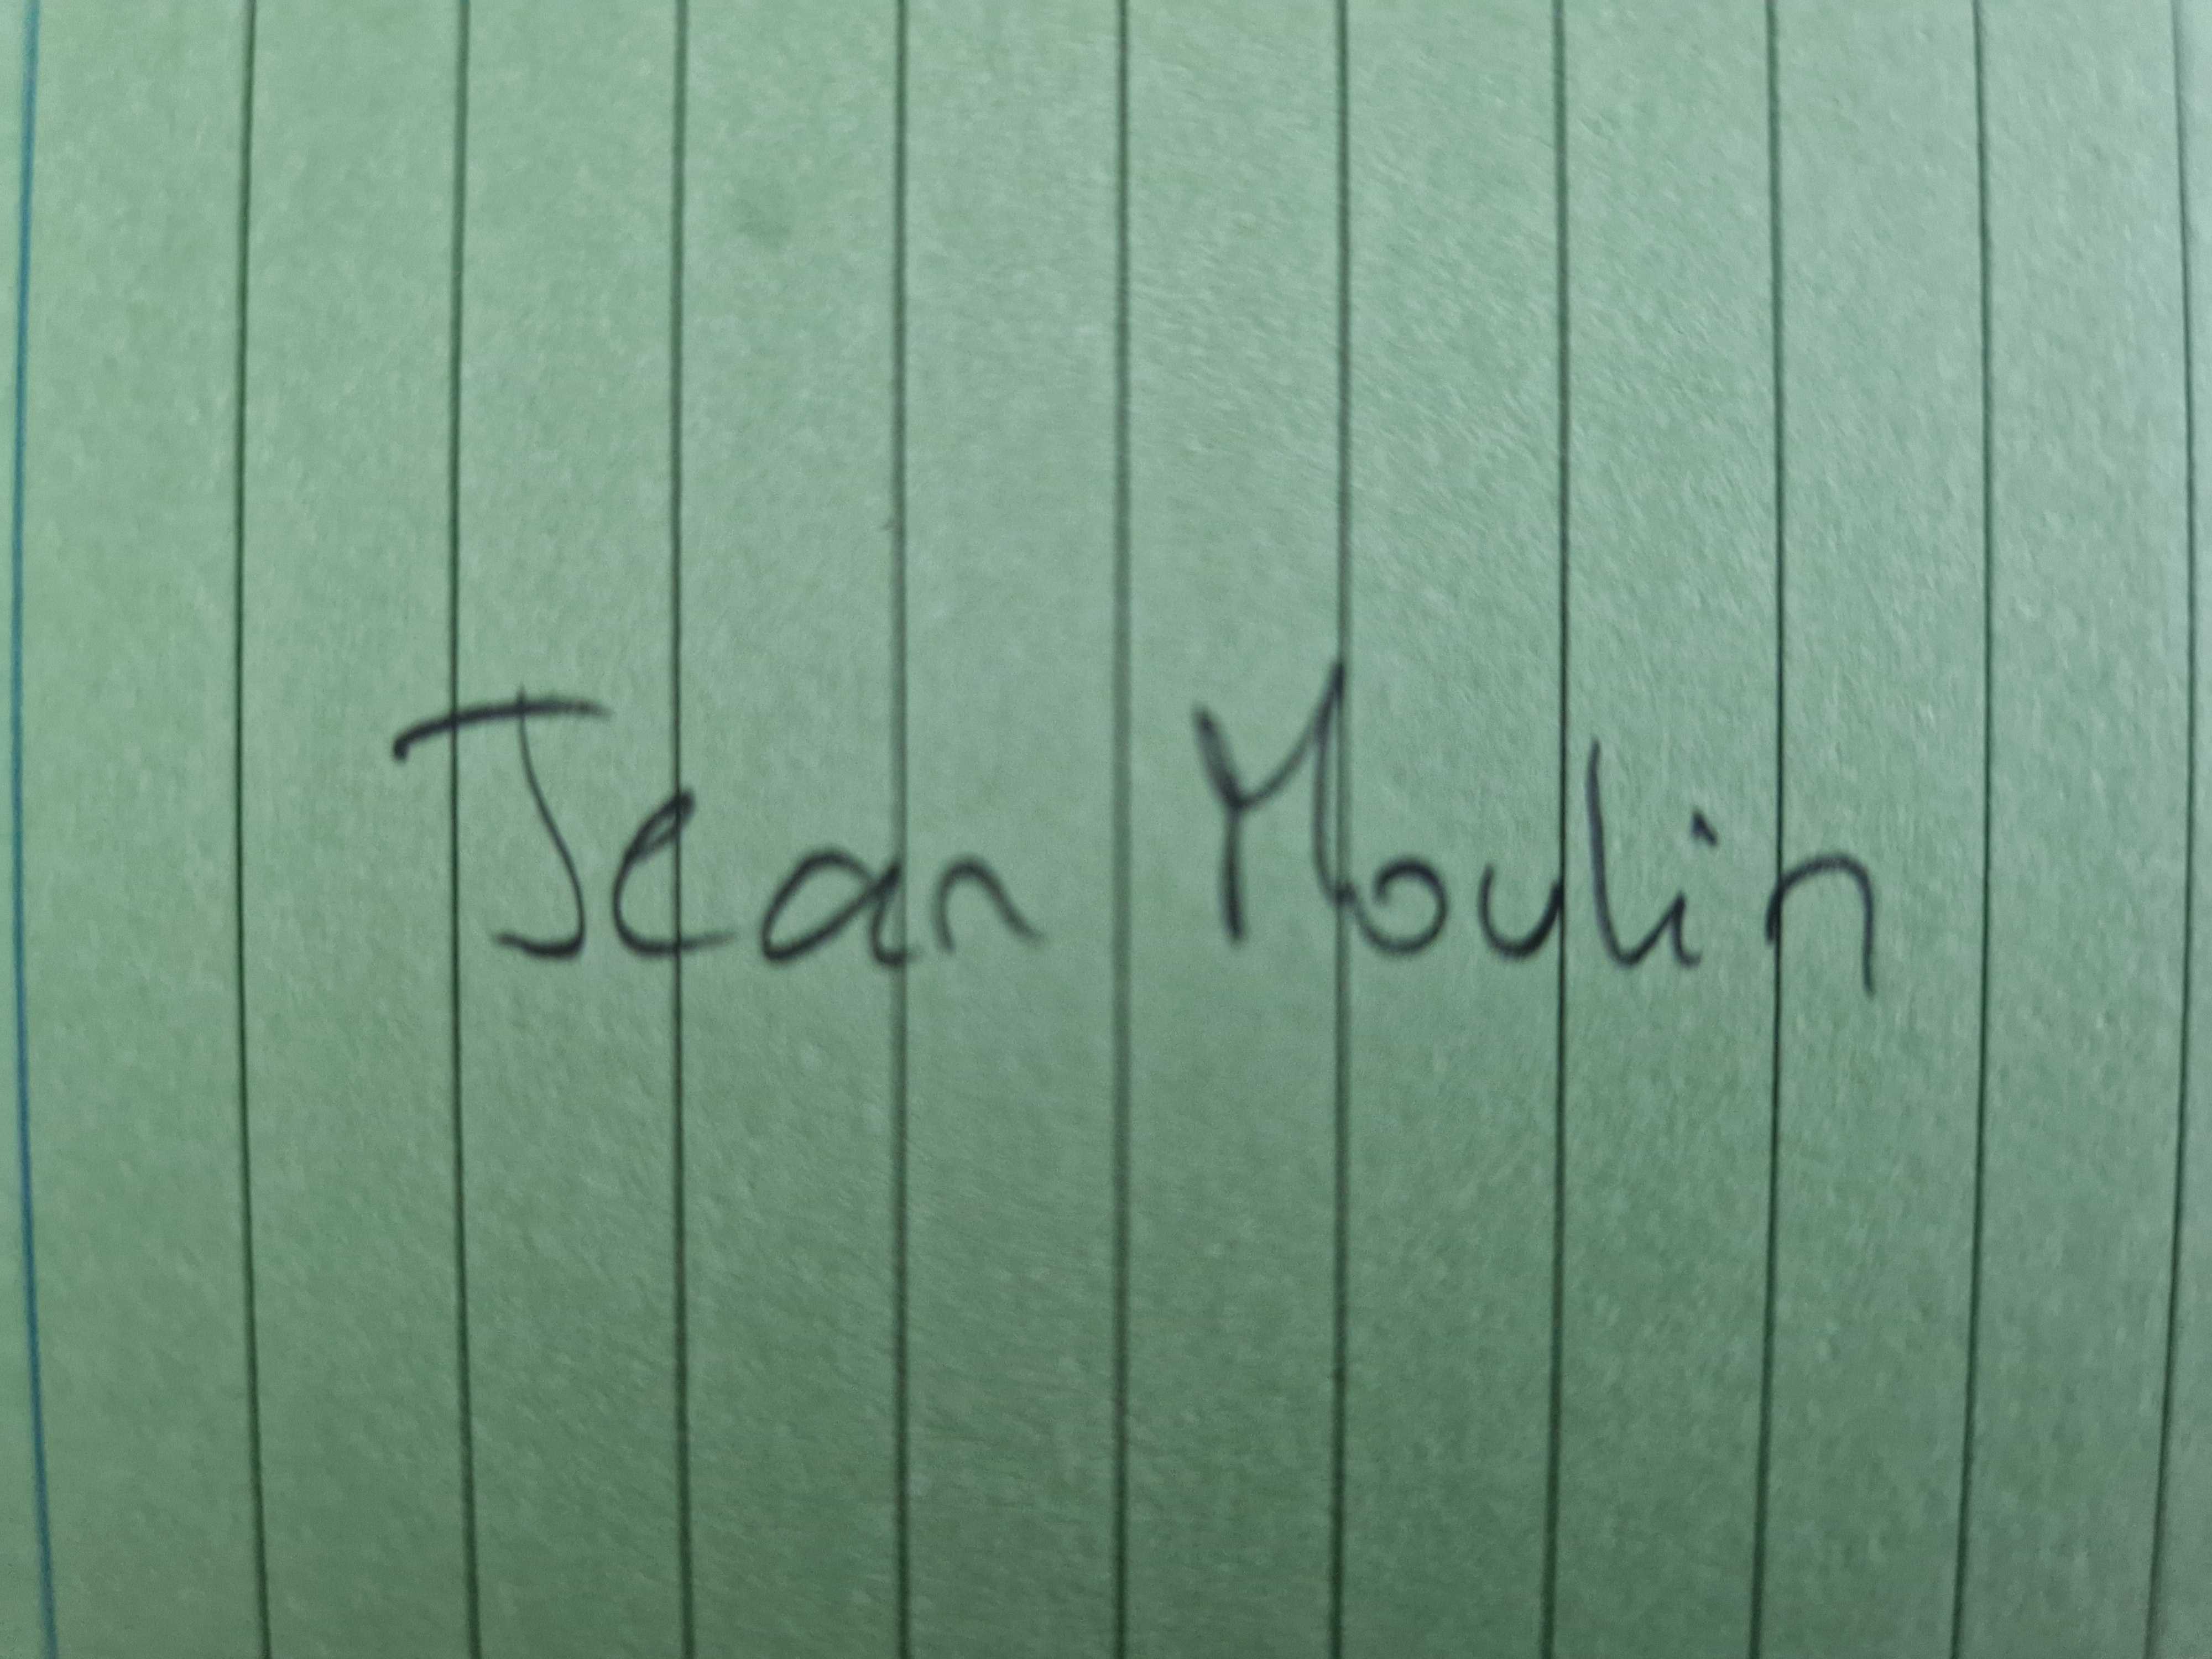 Jean Moulin